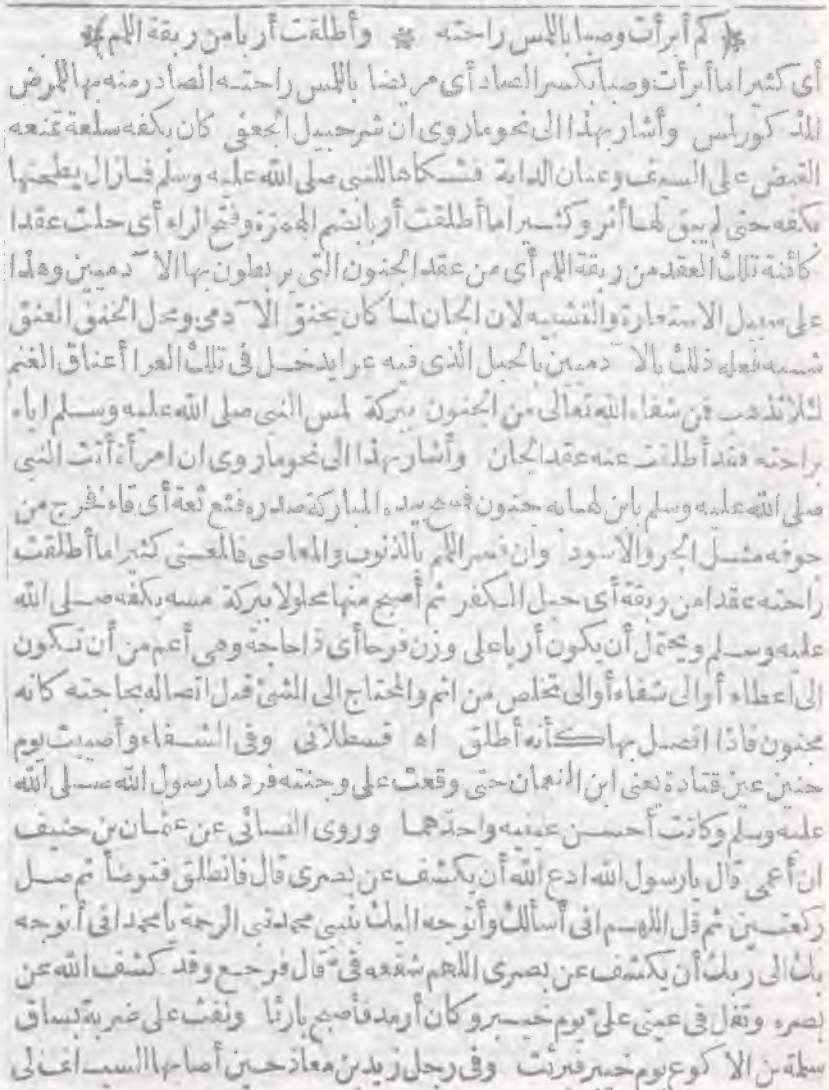 ﴿كم أبرأت وصبا باللمس راحته * وأطلقت أربا من ربقة اللمم﴾
أى كثيرا ما أبرأت وصبا بكسر الصاد أى مريضا باللمس راحته الصادر منه بها للمرض
المذكور لمس وأشار بهذا الى نحو ما روى ان شرحبيل الجعفى كان بكفه سلعة تمنعه
القبض على السيف وعنان الدابة فشكاها للنبى صلى الله عليه وسلم فما زال يطحنها
بكفه حتى لم يبق لها أثر وكثيرا ما أطلقت أربا بضم الهمزة وفتح الراء أى حلت عقدا
كائنة تلك العقد من ربقة اللمم أى من عقد الجنون التى يربطون بها الآدميين وهذا
على سبيل الاستعارة والتشبيه لان الجان لما كان يخنق الآدمى ومحل الخنق العنق
شبه فعله ذلك بالآدميين بالحبل الذى فيه عرا يدخل فى تلك العرا أعناق الغنم
لئلا تذهب فمن شفاه الله تعالى من الجنون ببركة لمس النبى صلى الله عليه وسلم اياه
براحته فقد أطلقت عنه عقد الجان وأشار بهذا الى نحو ما روى ان امرأة أتت النبى
صلى الله عليه وسلم بابن لها به جنون فمسح بيده المباركة صدره فثع ثعة أى قاء فخرج من
جوفه مثل الجرو الاسود وان فسر اللمم بالذنوب والمعاصى فالمعنى كثيرا ما أطلقت
راحته عقدا من ربقة أى حبل الكفر ثم أصبح منها محلولا ببركة مسه بكفه صلى الله
عليه وسلم ويحتمل أن يكون أربا على وزن فرحا أى ذا حاجة وهى أعم من أن تكون
الى اعطاء أو الى شفاء أو الى تخلص من اثم والمحتاج الى الشئ قبل اتصاله بحاجته كانه
مجنون فاذا اتصل بها كأنه أطلق اه قسطلانى وفى الشفاء وأصيبت يوم
حنين عين قتادة يعنى ابن النعمان حتى وقعت على وجنته فردها رسول الله صلى الله
عليه وسلم وكانت أحسن عينيه وأحدهما وروى النسائى عن عثمان بن حنيف
ان أعمى قال يا رسول الله ادع الله أن يكشف عن بصرى قال فانطلق فتوضأ ثم صل
ركعتين ثم قل اللهم انى أسألك وأتوجه اليك بنبيى محمد نبى الرحمة يا محمد انى أتوجه
بك الى ربك أن يكشف عن بصرى اللهم شفعه فىّ قال فرجع وقد كشف الله عن
بصره وتفل فى عينى علىّ يوم خيبر وكان أرمد فأصبح بارئا ونفث على ضربة بساق
سلمة بن الاكوع يوم خيبر فبرئت وفى رجل زيد بن معاذ حين أصابها السيف الى